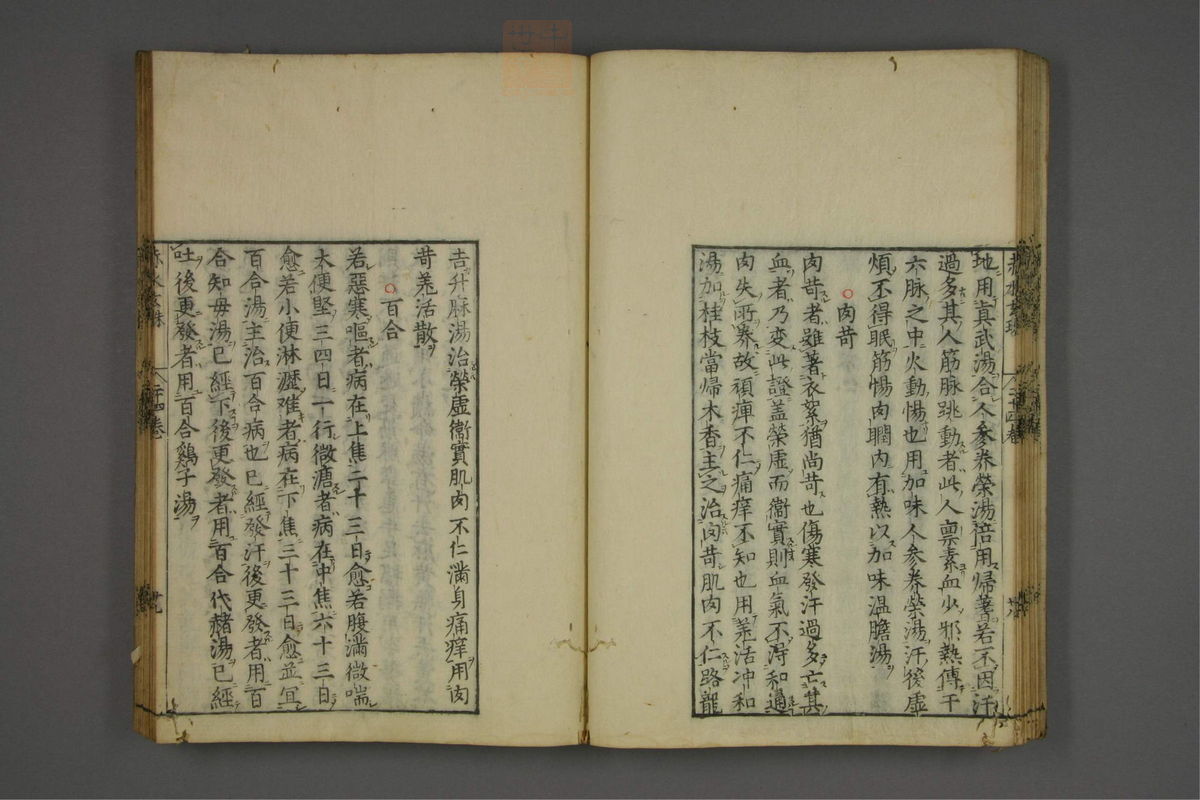 地用眞武湯合人參養榮湯倍用歸蓍若不因汗
過多其人筋脉跳動者此人禀素血少邪熱傳于
六脉之中火動惕也用加味人參養榮湯汗後虛
煩不得眠筋惕肉瞤内有熱以加味温膽湯
○肉苛
肉苛者雖著衣絮猶尚苛也傷寒發汗過多亡其
血者乃变此證盖榮虛而衞實則血氣不淂和通
肉失所養故頑痺不仁痛痒不知也用羗活冲和
湯加桂枝當帰木香主之治肉苛肌肉不仁路龍
吉升麻湯治榮虛衞實肌肉不仁滿身痛痒用肉
苛羗活散
○百合
若惡寒嘔者病在上焦二十三日愈若腹滿微喘
大便堅三四日一行微溏者病在中焦六十三日
愈若小便淋瀝难者病在下焦三十三日愈並冝
百合湯主治百合病也已經發汗後更發者用百
合知毋湯已經下後更發者用百合代赭湯已經
吐後更發者用百合鷄子湯